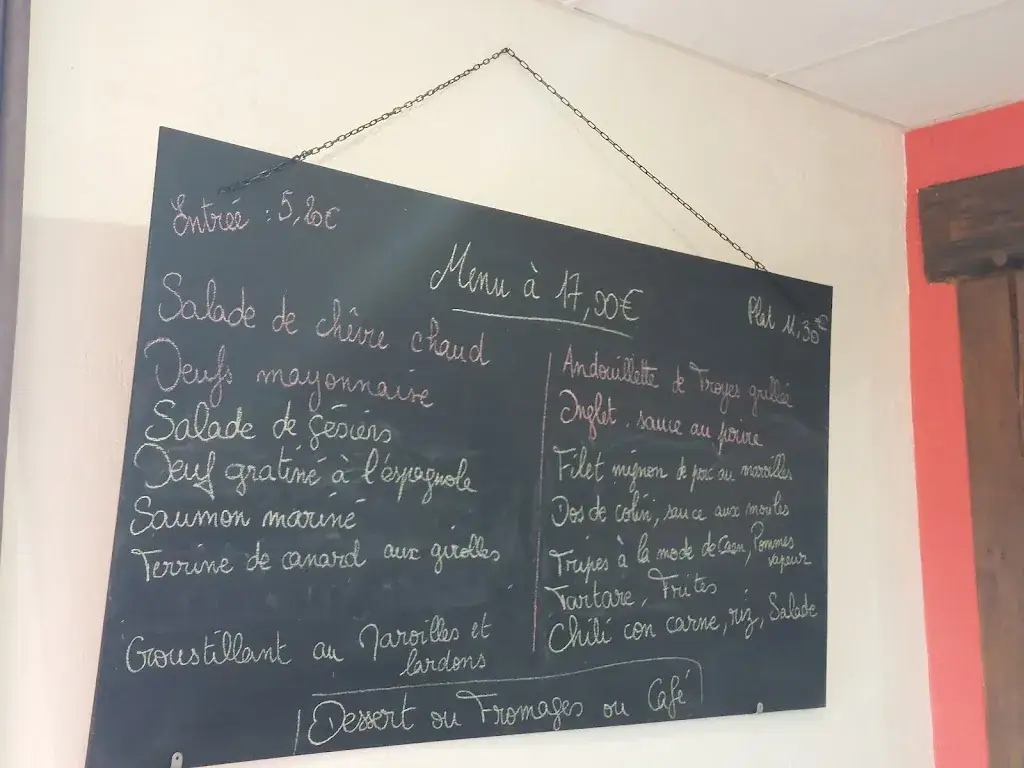 Entrée : 5,20€
Menu à 17,90€
Plat 11,30€
Salade de chèvre chaud
Oeufs mayonnaise
Salade de gésiers
Oeuf gratiné à l'espagnole
Saumon mariné
Terrine de canard aux girolles
Croustillant au Maroilles et
lardons
Andouillette de Troyes grillée
Onglet, sauce au poivre
Filet mignon de porc au maroilles
Dos de colin, sauce aux moules
Tripes à la mode de Caen, Pommes
vapeur
Tartare, Frites
Chili con carne, riz, Salade
Dessert ou Fromages ou Café